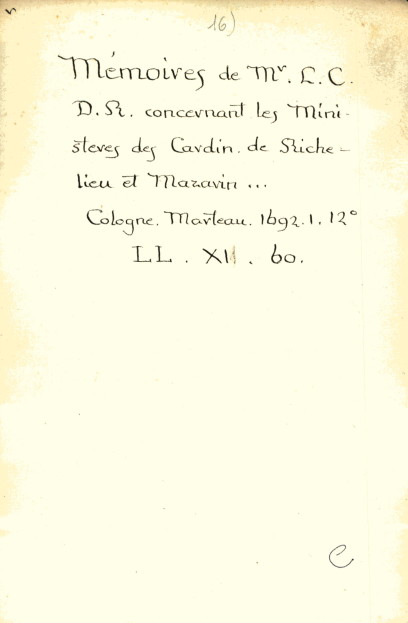 16)
Mémoires de Mr. L. C.
D. R. concernant les Mini-
stères des Cardin. de Riche-
lieu et Mazarin ...
Cologne. Marteau. 1692. 1. 12°
LL. XII. 60.
C